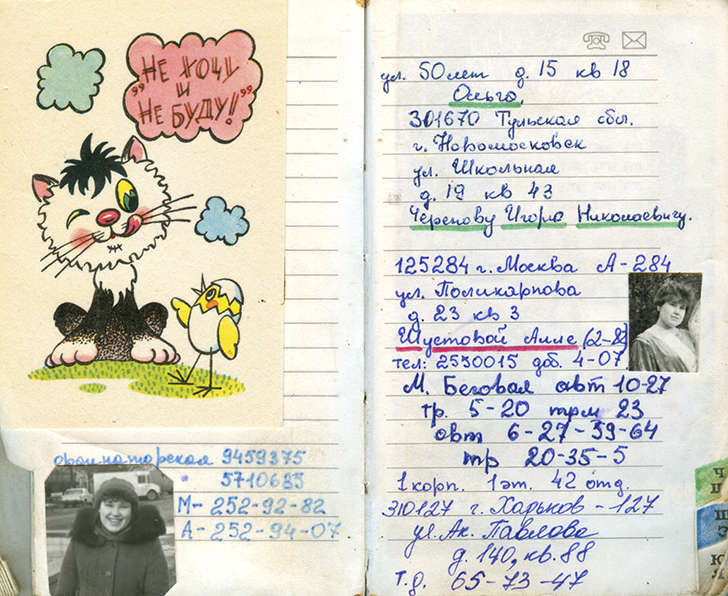 "НЕ ХОЧУ
И
НЕ БУДУ!"
9459375
5710685
М- 252-92-82
А- 252-94-07
ул. 50 лет д. 15 кв 18
Ольга.
301670 Тульская обл.
г. Новомосковск
ул. Школьная
д. 19 кв 43
Черепову Игорю Николаевичу.
125284 г. Москва А-284
ул. Поликарпова
д. 23 кв 3
Шустовой Алле
тел: 2550015 доб. 4-07
М. Беговая авт 10-27
тр. 5-20 трм 23
авт 6-27-39-64
тр 20-35-5
1 корп. 1 эт. 42 отд.
310127 г. Харьков - 127
ул. Ак. Павлова
д. 140, кв. 88
т.д. 65-73-47